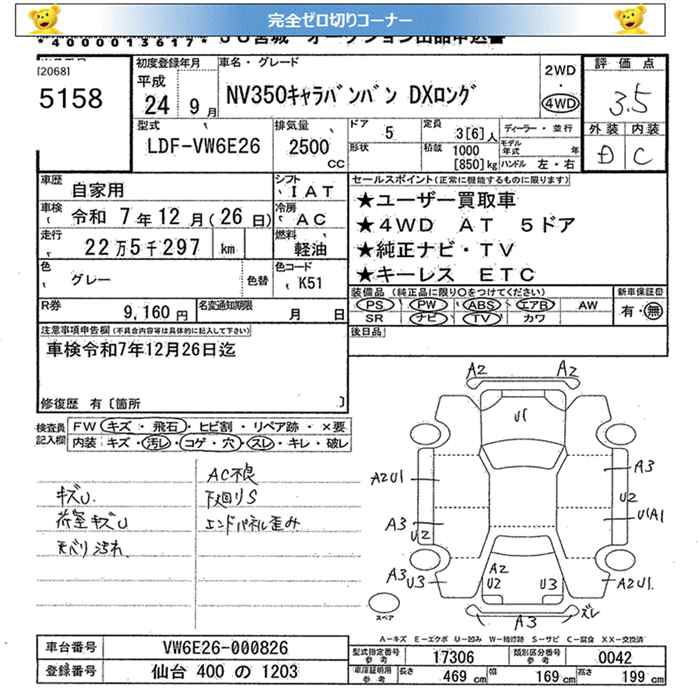 完全ゼロ切りコーナー
*4000013617* JU宮城 オークション出品申込書
[2068]
5158
初度登録年月
平成
24 9月
車名・グレード
NV350キャラバンバン DXロング
2WD
・
4WD
評価点
3.5
外装 内装
D C
型式
LDF-VW6E26
排気量
2500
CC
ドア
5
形状
定員
3[6]人
積載
1000
[850]kg
ディーラー・並行
モデル
年式 年
ハンドル 左・右
車歴
自家用
シフト
IAT
車検
令和 7年12月(26日)
冷房
AC
走行
22万5千297 km
燃料
軽油
色
グレー
色替
色コード
K51
R券
9,160円
名変通知期限
月 日
セールスポイント(正常に機能するものに限ります)
★ユーザー買取車
★4WD AT 5ドア
★純正ナビ・TV
★キーレス ETC
装備品(純正品に限り○をつけてください)
PS PW ABS エアB AW
SR ナビ TV カワ
新車保証書
有・無
後日品
注意事項申告欄(不具合内容等は具体的に記入して下さい)
車検令和7年12月26日迄
修復歴 有〔箇所 〕
検査員
記入欄
FW キズ・飛石・ヒビ割・リペア跡・×要
内装 キズ・汚れ・コゲ・穴・スレ・キレ・破レ
AC不良
キズU
下廻りS
荷室キズU
エンドパネル歪み
天バリ汚れ
A2 A2
U1
A2U1
A3
A3
U2
U2
U1A1
A3
U3
A2
U2
U3
A2U1
A3
ズレ
スペア
A-キズ E-エクボ U-凹み W-補修跡 S-サビ C-腐食 XX-交換済
車台番号
VW6E26-000826
登録番号
仙台 400 の 1203
型式指定番号
参考
17306
類別区分番号
参考
0042
車庫証明用
参考
長さ
469 cm
幅
169 cm
高さ
199 cm